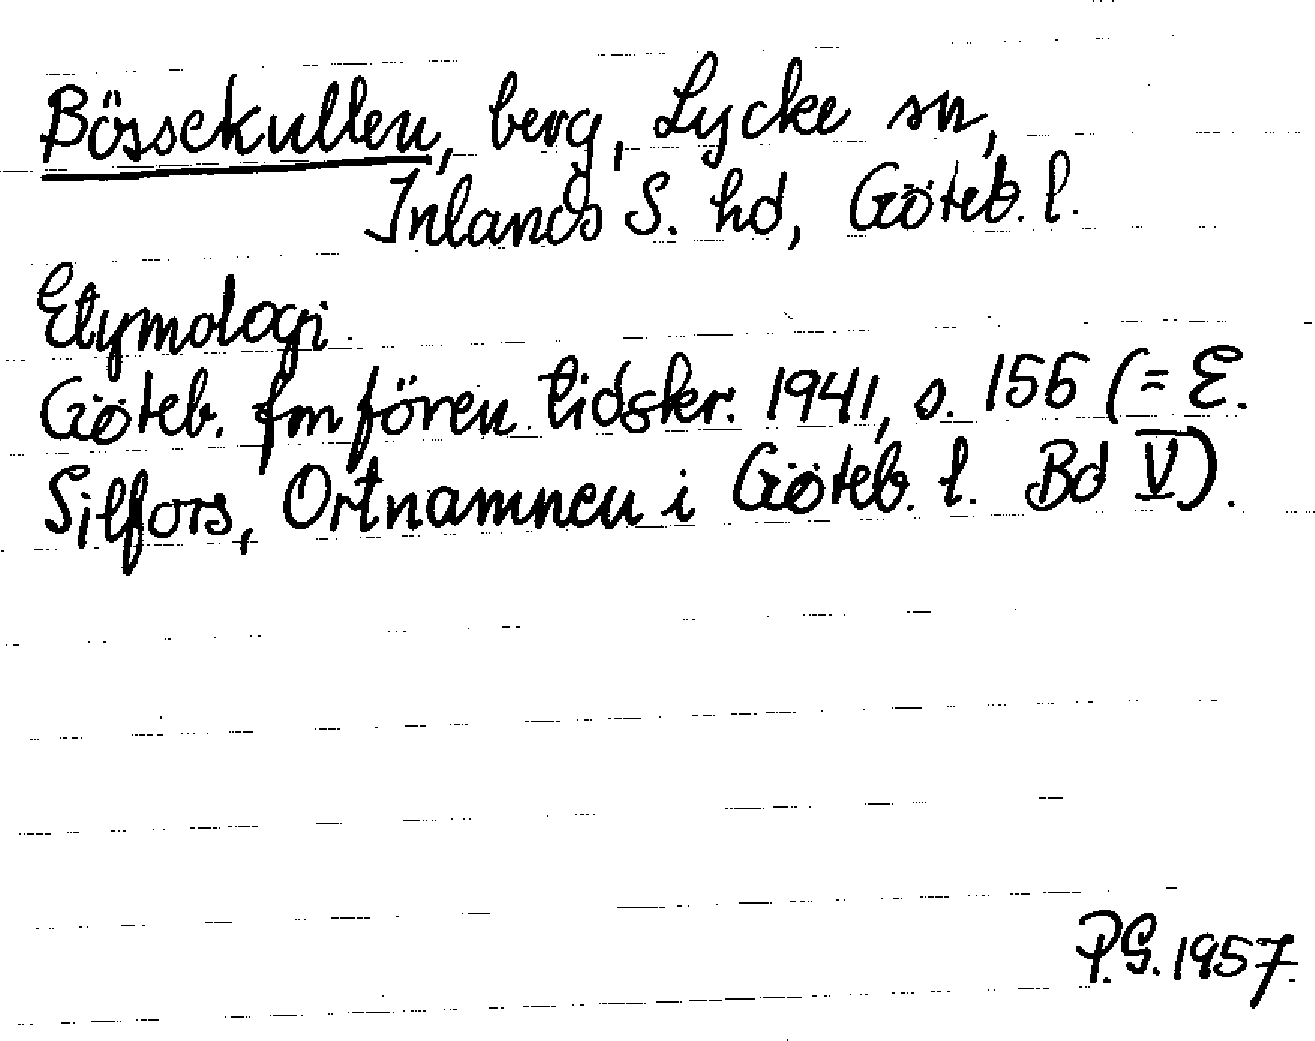 Bössekullen, berg, Lycke sn,
Inlands S. hd, Göteb. l.
Etymologi
Göteb. fmfören. tidskr. 1941, s. 156 (= E.
Silfors, Ortnamnen i Göteb. l. Bd V).
P.G. 1957.